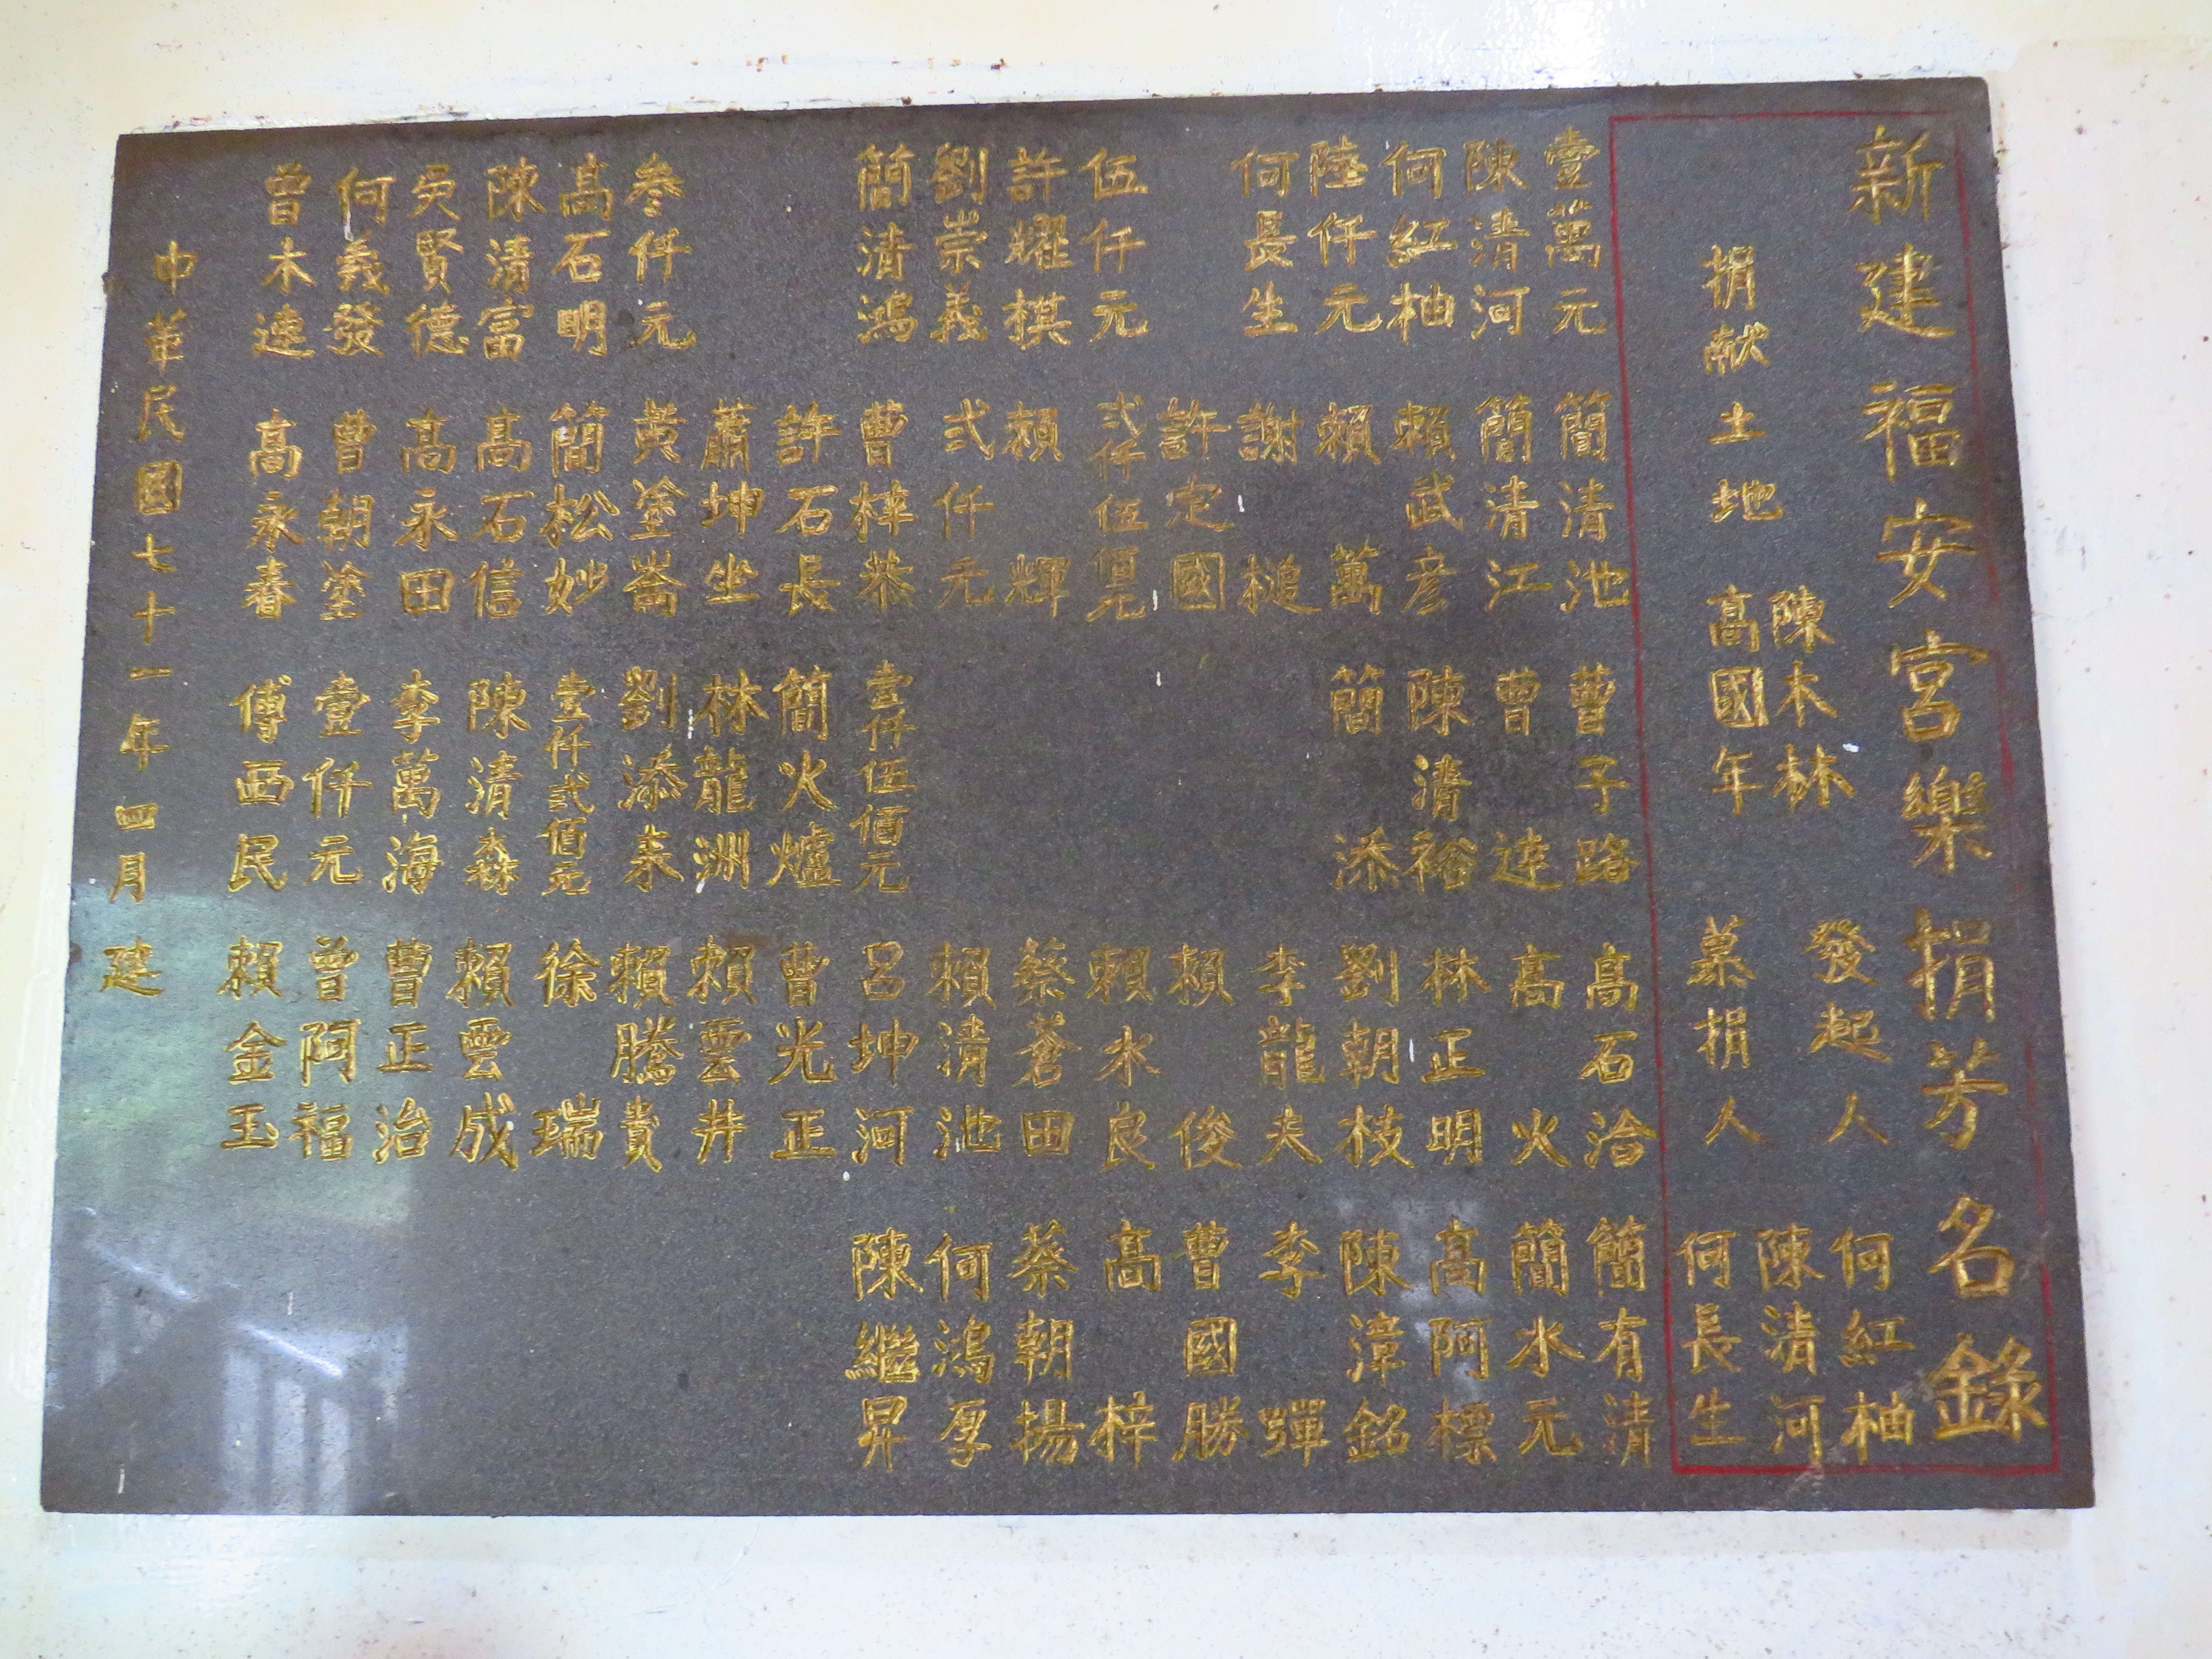 新建福安宮樂捐芳名錄
捐献土地 陳木林
高國年
發起人
募捐人
何紅柚
陳清河
何長生
壹萬元
陳清河
何紅柚
陸仟元
何長生
伍仟元
許耀棋
劉崇義
簡清鴻
參仟元
高石明
陳清富
吳賢德
何義發
曾木連
簡清池
簡清江
賴武彦
賴萬
謝槌
許定國
弍仟伍佰元
賴輝
弍仟元
曹梓恭
許石長
蕭坤坐
黄塗崙
簡松妙
高石信
高永田
曹朝塗
高永春
曹子路
曹達
陳清裕
簡添
壹仟伍佰元
簡火爐
林龍洲
劉添來
壹仟弍佰元
陳清森
李萬海
壹仟元
傅西民
高石治
高火
林正明
劉朝枝
李龍夫
賴俊
賴水良
蔡蒼田
賴清池
呂坤河
曹光正
賴雲井
賴騰貴
徐瑞
賴雲成
曹正治
曾阿福
賴金玉
簡有清
簡水元
高阿標
陳漳銘
李彈
曹國勝
高梓
蔡朝揚
何鴻厚
陳繼昇
中華民國七十一年四月建